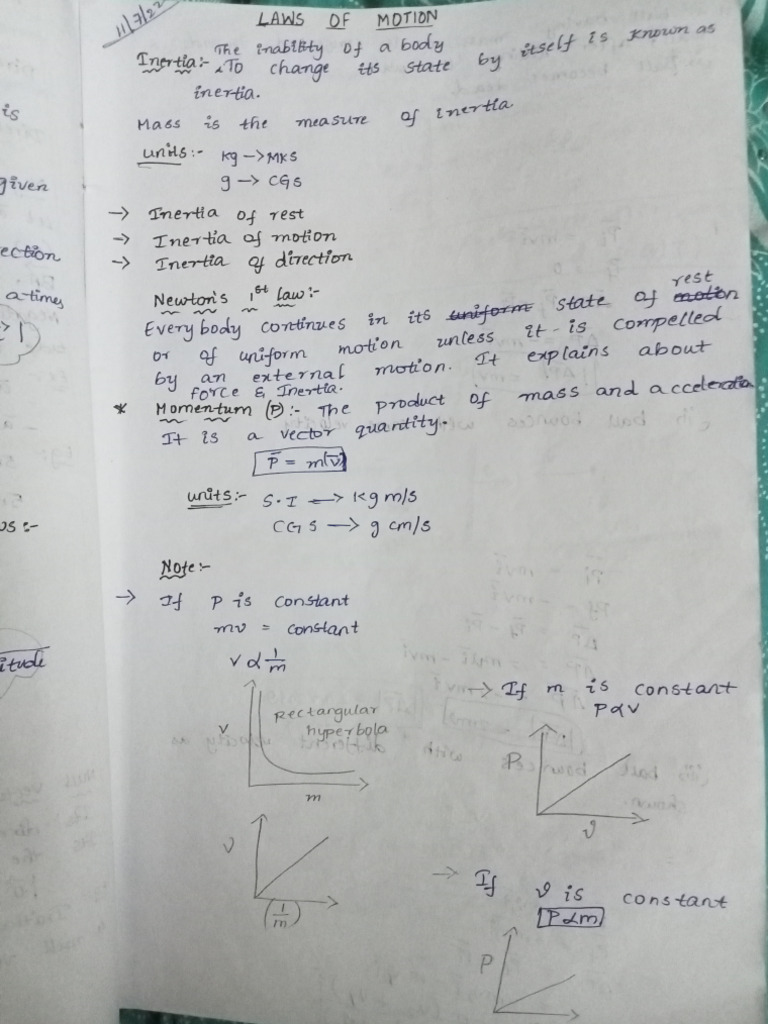 11/7/22
LAWS OF MOTION
Inertia:- The inability of a body
To change its state by itself is known as
inertia.
Mass is the measure of inertia
units:- kg → MKS
g → CGS
→ Inertia of rest
→ Inertia of motion
→ Inertia of direction
Newton's 1st law:-
Every body continues in its uniform state of motion rest
or of uniform motion unless it is compelled
by an external motion. It explains about
force & Inertia.
* Momentum (P):- The product of mass and acceleration
It is a vector quantity.
P̄ = m(v̄)
units:- S.I ↔ kg m/s
CGS → g cm/s
Note:-
→ If P is constant
mv = constant
v ∝ 1/m
v
Rectangular
hyperbola
m
→ If m is constant
P ∝ v
P
v
v
(1/m)
→ If v is constant
P ∝ m
P
is
given
ection
a times
> 1
us:-
itude